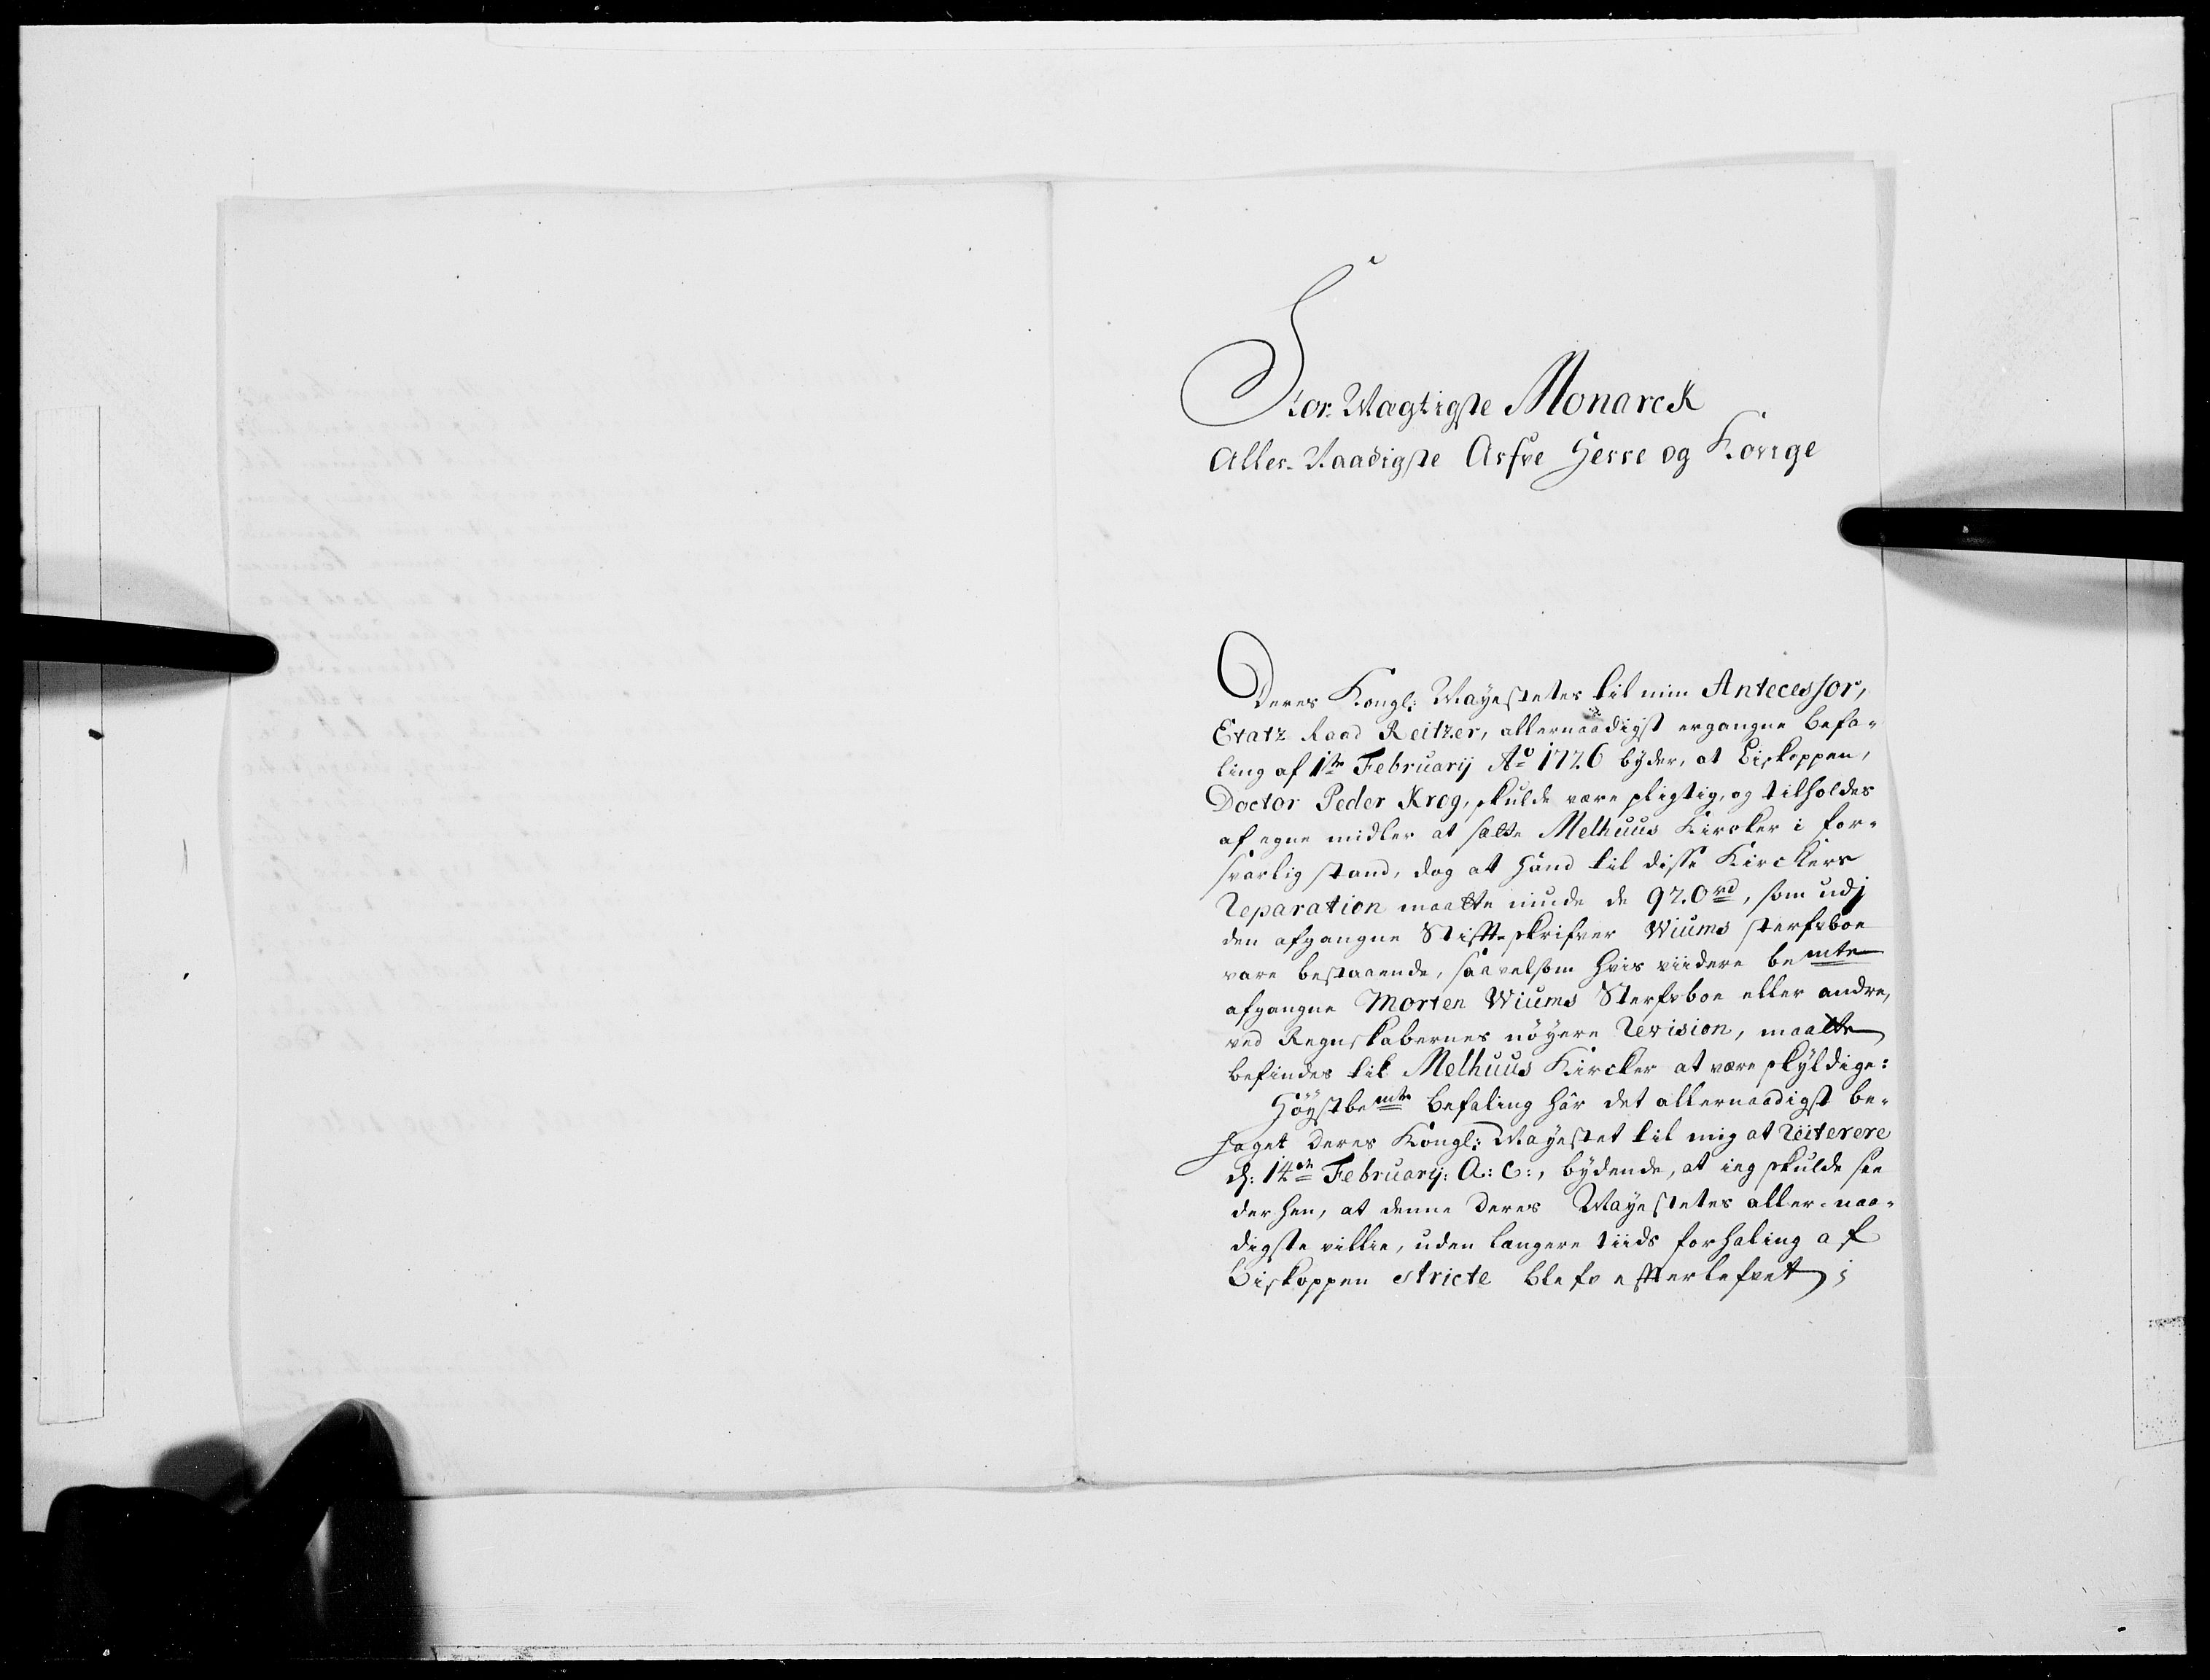 Stor-Mægtigste Monarck
Aller-Naadigste Arfve Herre og Konge
Deres Kongl: Mayestetes til min Antecessor,
Etatz Raad Reitzer, allernaadigst ergangne befa-
ling af 1ste February Ao 1726 byder, at Biskoppen,
Doctor Peder Krog, skulde være pligtig, og tilholdes
af egne midler at sætte Melhuus Kircker i for-
svarlig stand, dog at hand til disse Kirckers
Reparation maatte niude de 920 rd, som udj
den afgangne Stiftskrifver Wiums sterfboe
vare bestaaende, saavelsom hvis viidere bemte
afgangne Morten Wiums Sterfboe eller andre,
ved Regnskabernes nöyere Revision, maatte
befindes til Melhuus Kircker at være skyldige:
Höystbemte befaling har det allernaadigst be-
haget Deres Kongl: Mayestet til mig at Reiterere
d: 14de February: A: C:, bydende, at ieg skulde see
derhen, at denne Deres Mayestetes aller-naa-
digste villie, uden længere tiids forhaling af
Biskoppen stricte blefv effterlefvet;